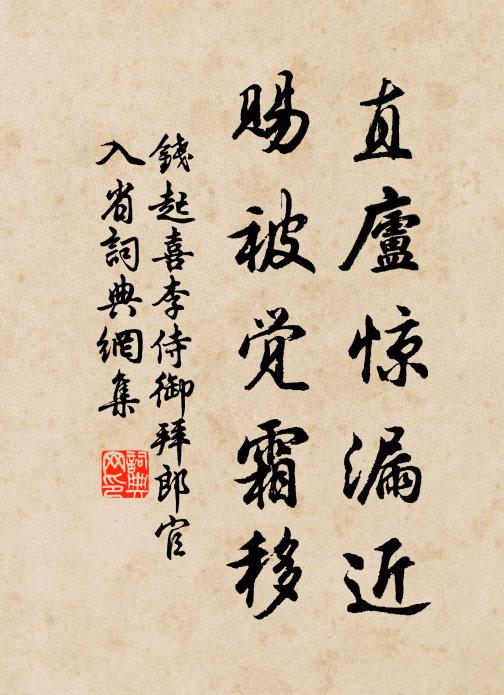 直廬惊漏近
賜被觉霜移
錢起喜李侍御拜郎官
入省詞典網集
詞典网印